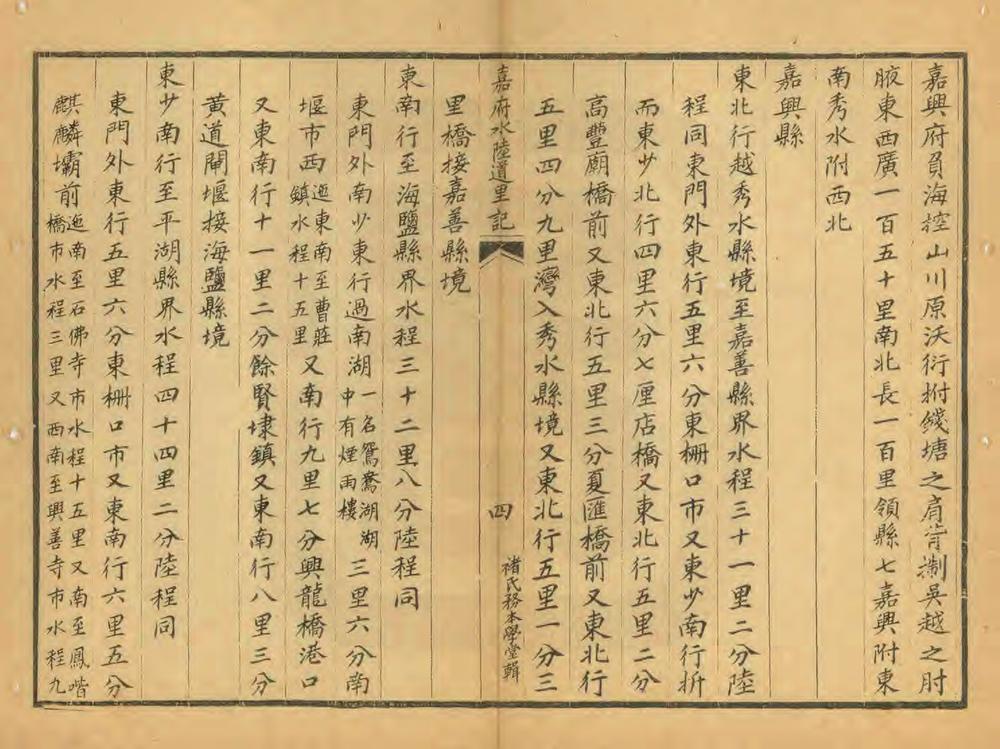 嘉興府負海控山川原沃衍拊錢塘之肩背掣吳越之肘
腋東西廣一百五十里南北長一百里領縣七嘉興附東
南秀水附西北
嘉興縣
東北行越秀水縣境至嘉善縣界水程三十一里二分陸
程同東門外東行五里六分東柵口市又東少南行折
而東少北行四里六分七厘店橋又東北行五里二分
高豐廟橋前又東北行五里三分夏匯橋前又東北行
五里四分九里灣入秀水縣境又東北行五里一分三
嘉府水陸道里記
四
褚氏務本學堂輯
里橋接嘉善縣境
東南行至海鹽縣界水程三十二里八分陸程同
東門外南少東行過南湖一名鴛鴦湖湖中有煙雨樓三里六分南
堰市西迤東南至曹莊鎮水程十五里又南行九里七分興龍橋港口
又東南行十一里二分餘賢埭鎮又東南行八里三分
黃道閘堰接海鹽縣境
東少南行至平湖縣界水程四十四里二分陸程同
東門外東行五里六分東柵口市又東南行六里五分
麒麟壩前迤南至石佛寺市水程十五里又南至鳳喈橋市水程三里又西南至興善寺市水程九